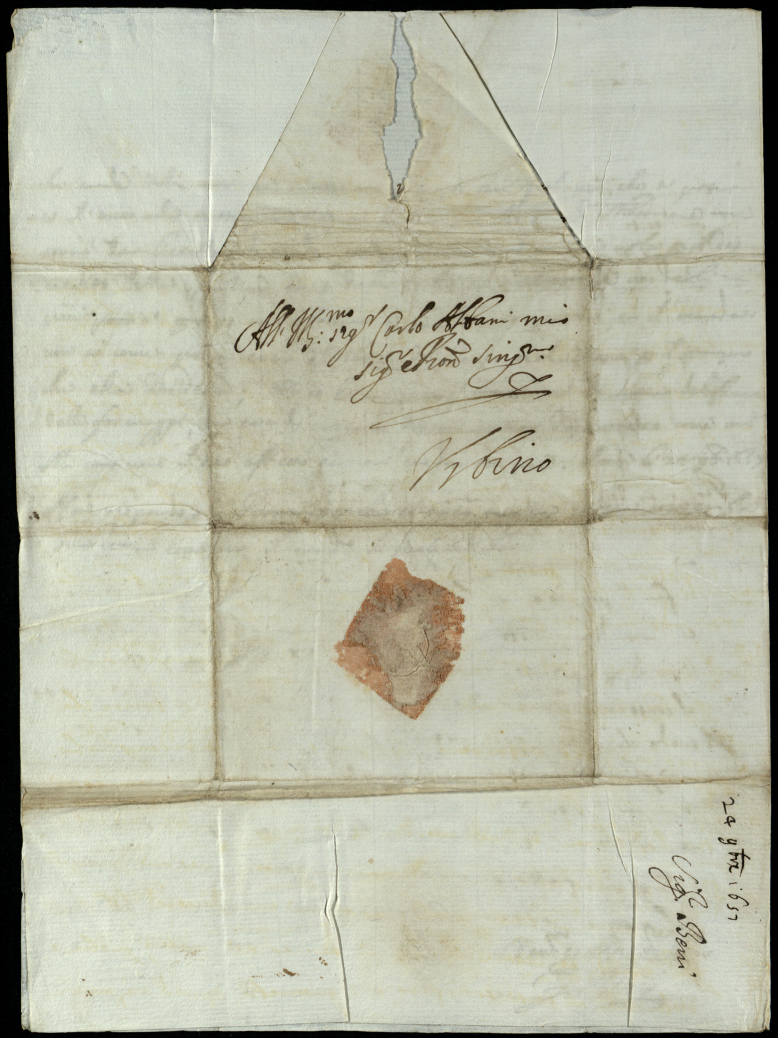 All' Ill:mo sigr Carlo Albani mio
sigr e Pron singre
Vrbino
24 9bre 1657
Sigr Beni